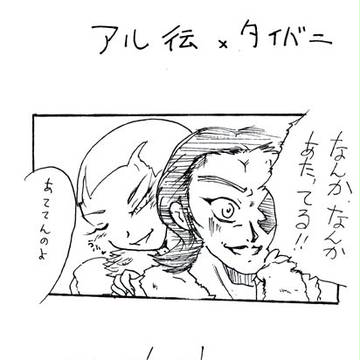 アル伝 × タイバニ
なんか、なんか
あたってる!!
あててんのよ